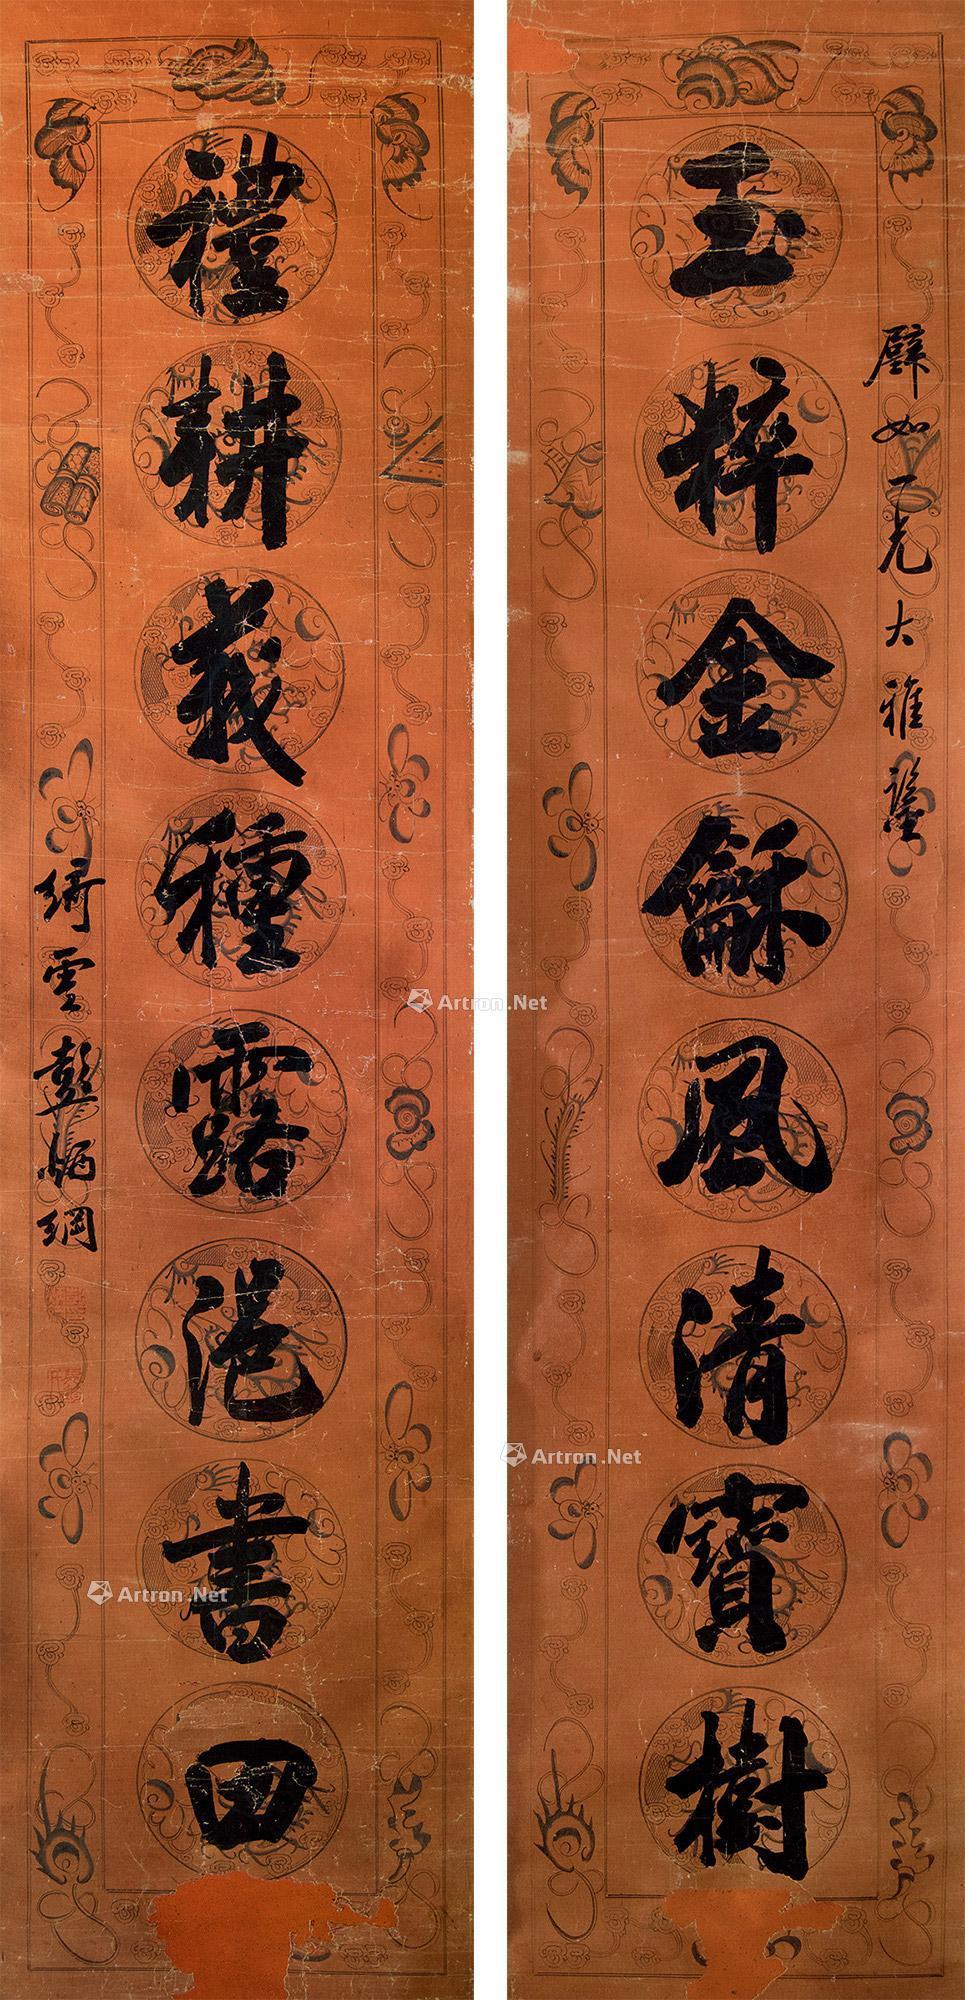 玉粹金龢風清寶樹
璧如一兄大雅鑒
禮耕義種露浥書田
綺雲彭炳綱
Artron.Net
Artron.Net
Artron.Net